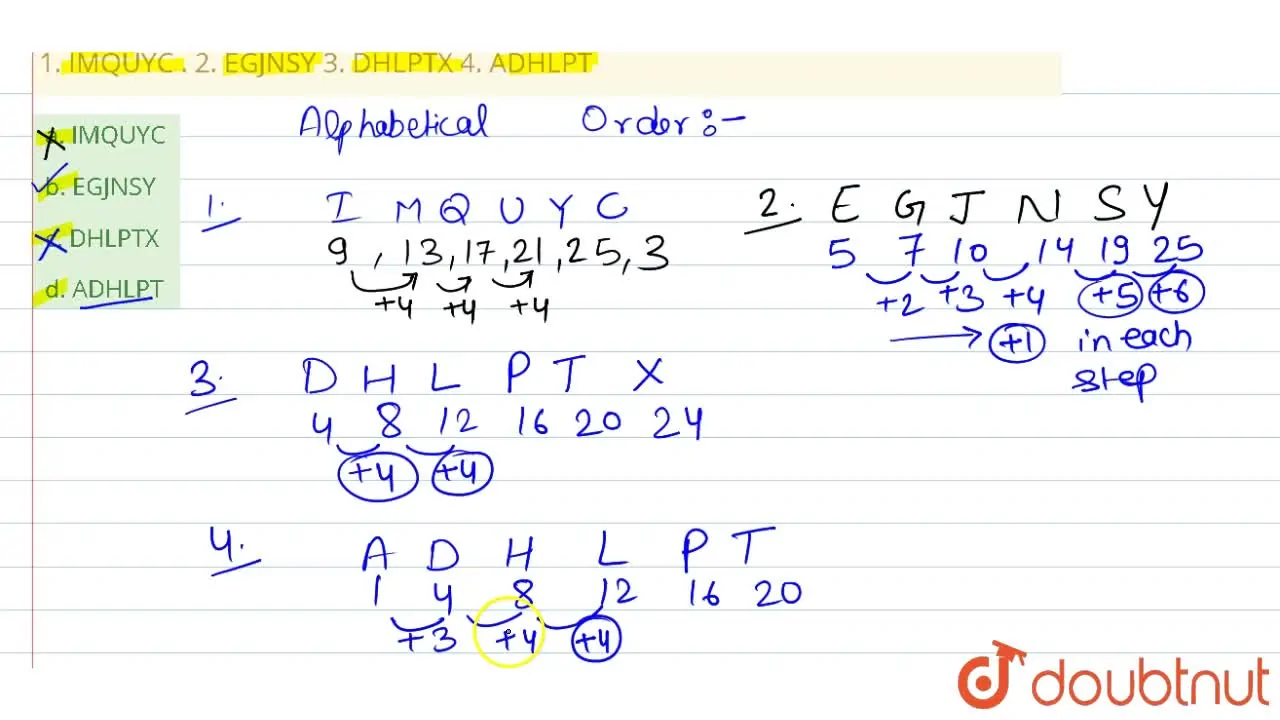 1. IMQUYC . 2. EGJNSY 3. DHLPTX 4. ADHLPT
a. IMQUYC
b. EGJNSY
c. DHLPTX
d. ADHLPT
Alphabetical Order :-
1. I M Q U Y C
9 , 13, 17, 21, 25, 3
+4 +4 +4
2. E G J N S Y
5 7 10 14 19 25
+2 +3 +4 +5 +6
→ +1 in each
step
3. D H L P T X
4 8 12 16 20 24
+4 +4
4. A D H L P T
1 4 8 12 16 20
+3 +4 +4
doubtnut